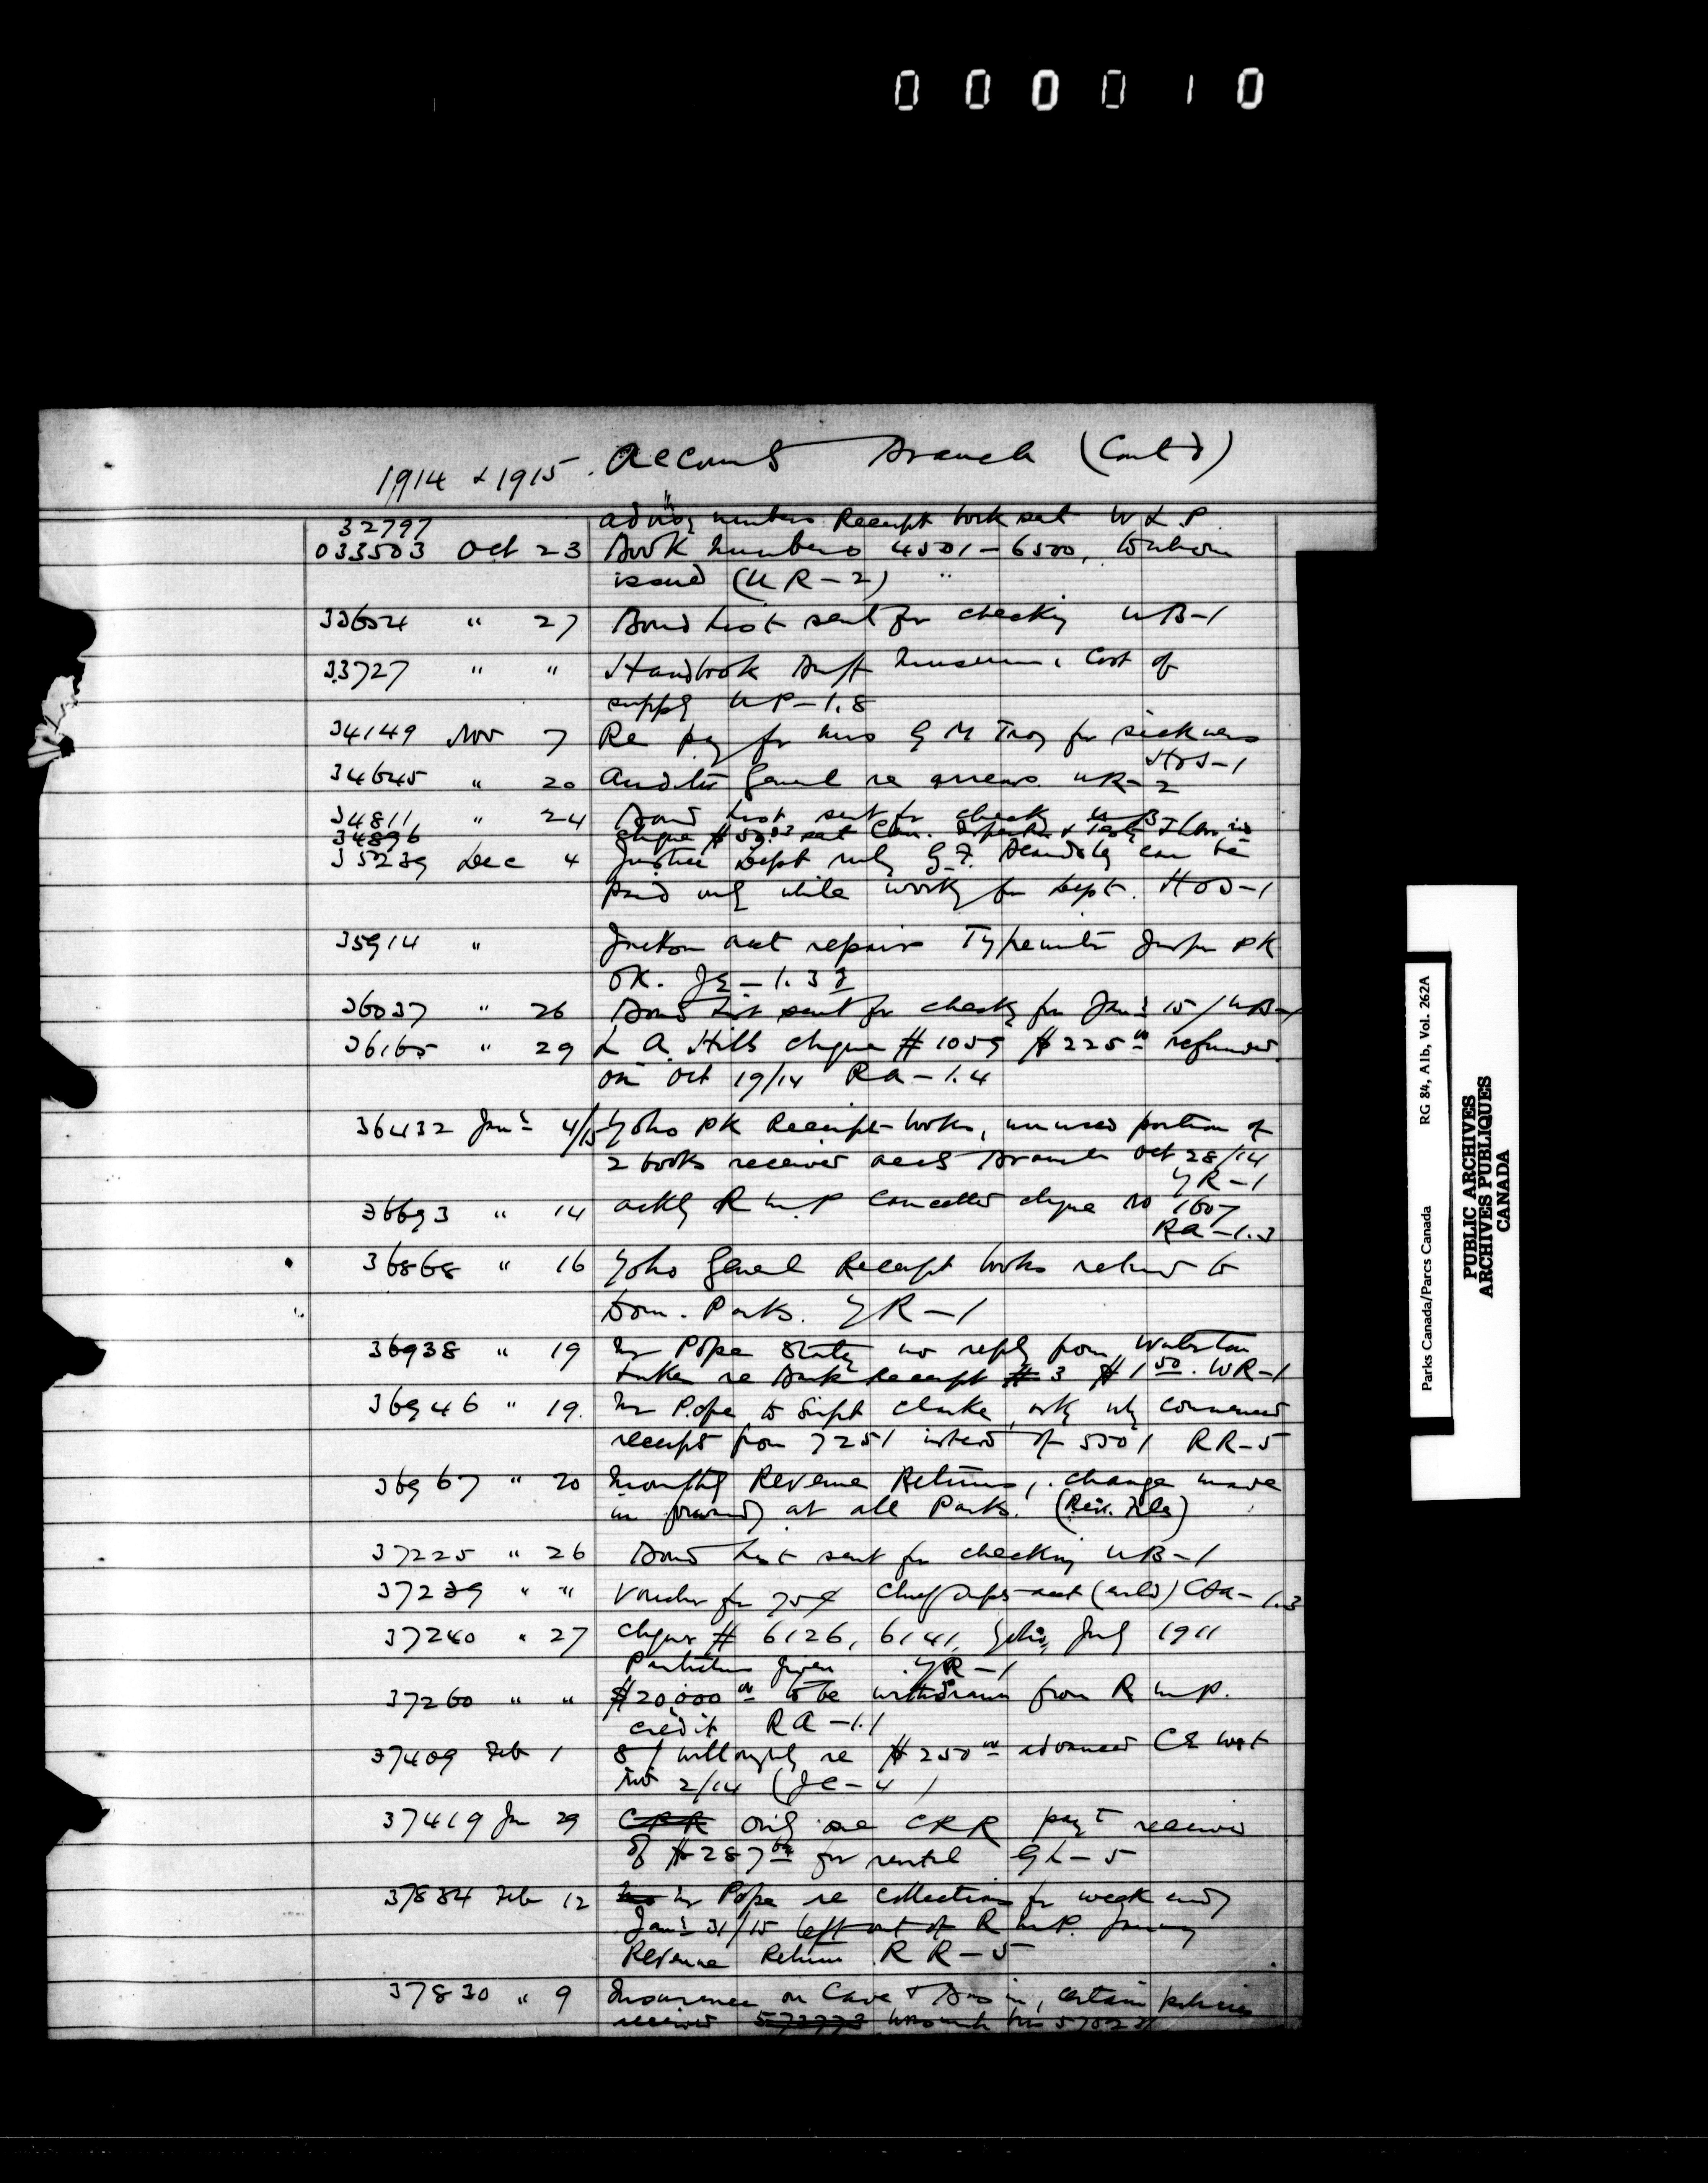 000010
1914 & 1915. Accounts Branch (Cont'd)
32797 numbers Receipt book sent W L P.
033503 Oct 23 Book numbers 4501-6500,
issued (UR-2) "
33604 " 27 Bond List sent for checking UB-1
33727 " " Handbook Banff Museum, Cost of
supply UP-1.8
34149 Nov 7 Re pay for Mrs G M Troy for sickness
HOS-1
34645 " 20 Auditor General re arrears. UR-2
34811 " 24 Bond List sent for checking UB
34896 cheque # sent
35239 Dec 4 Justice Dept G.F. can be
paid only while working for Dept. HOS-1
35914 " acct repairs Typewriter Jasper PK
OK. JE-1.32
36037 " 26 Bond List sent for checking for Jany 15/UB-1
36165 " 29 L. A. Hills cheque #1059 $225.00 refunded
on Oct 19/14 RA-1.4
36432 Jany 4/15 Yoho PK Receipt books, unused portion of
2 books received accts Branch Oct 28/14
YR-1
36693 " 14 ackg R M P cancelled cheque no 1607
RA-1.3
36868 " 16 Yoho General Receipt books returned to
Dom. Parks. YR-1
36938 " 19 Mr Pope stating no reply from Waterton
Lakes re Receipt #3 $1.50. WR-1
36946 " 19. Mr Pope to Supt Clarke, asking why commenced
receipts from 7251 instead of 5501 RR-5
36967 " 20 Monthly Revenue Returns, change made
in forwarding at all Parks. (Rev. Files)
37225 " 26 Bond List sent for checking UB-1
37239 " " Voucher for 75¢ Chief Supt acct 1.3
37240 " 27 Cheques # 6126, 6141, Yoho, July 1911
Particulars given YR-1
37260 " " $20,000.00 to be withdrawn from R M P.
credit RA-1.1
37409 Feb 1 Willoughby re $250.00 advanced
Nov 2/14 (JE-4)
37419 Jan 29 CRR Only one CRR payt received
of $287 for rental GL-5
37884 Feb 12 Mr Pope re collections for week ending
Jany 31/15 left out of R M P. January
Revenue Return RR-5
37830 " 9 Insurance on Cave & Basin, certain policies
received
Parks Canada/Parcs Canada RG 84, A1b, Vol. 262A
PUBLIC ARCHIVES
ARCHIVES PUBLIQUES
CANADA